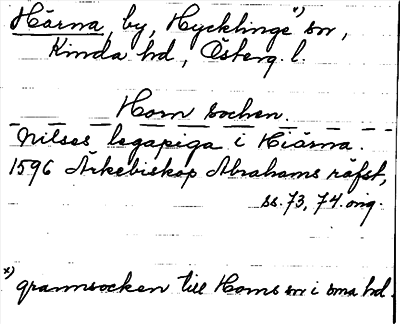 Härna, by, Hycklinge x) sn,
Kinda hd, Österg. l.
Horn socken.
Nilses legapiga i Hiärna.
1596 Ärkebiskop Abrahams räfst,
ss. 73, 74. orig.
x) grannsocken till Horns sn i sma hd.